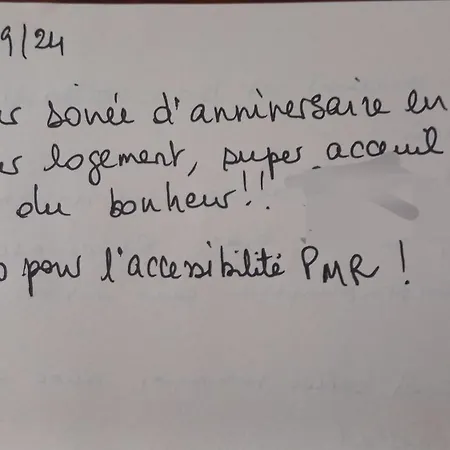 9/24
soirée d'anniversaire en
logement, super accueil
du bonheur!!
pour l'accessibilité PMR !